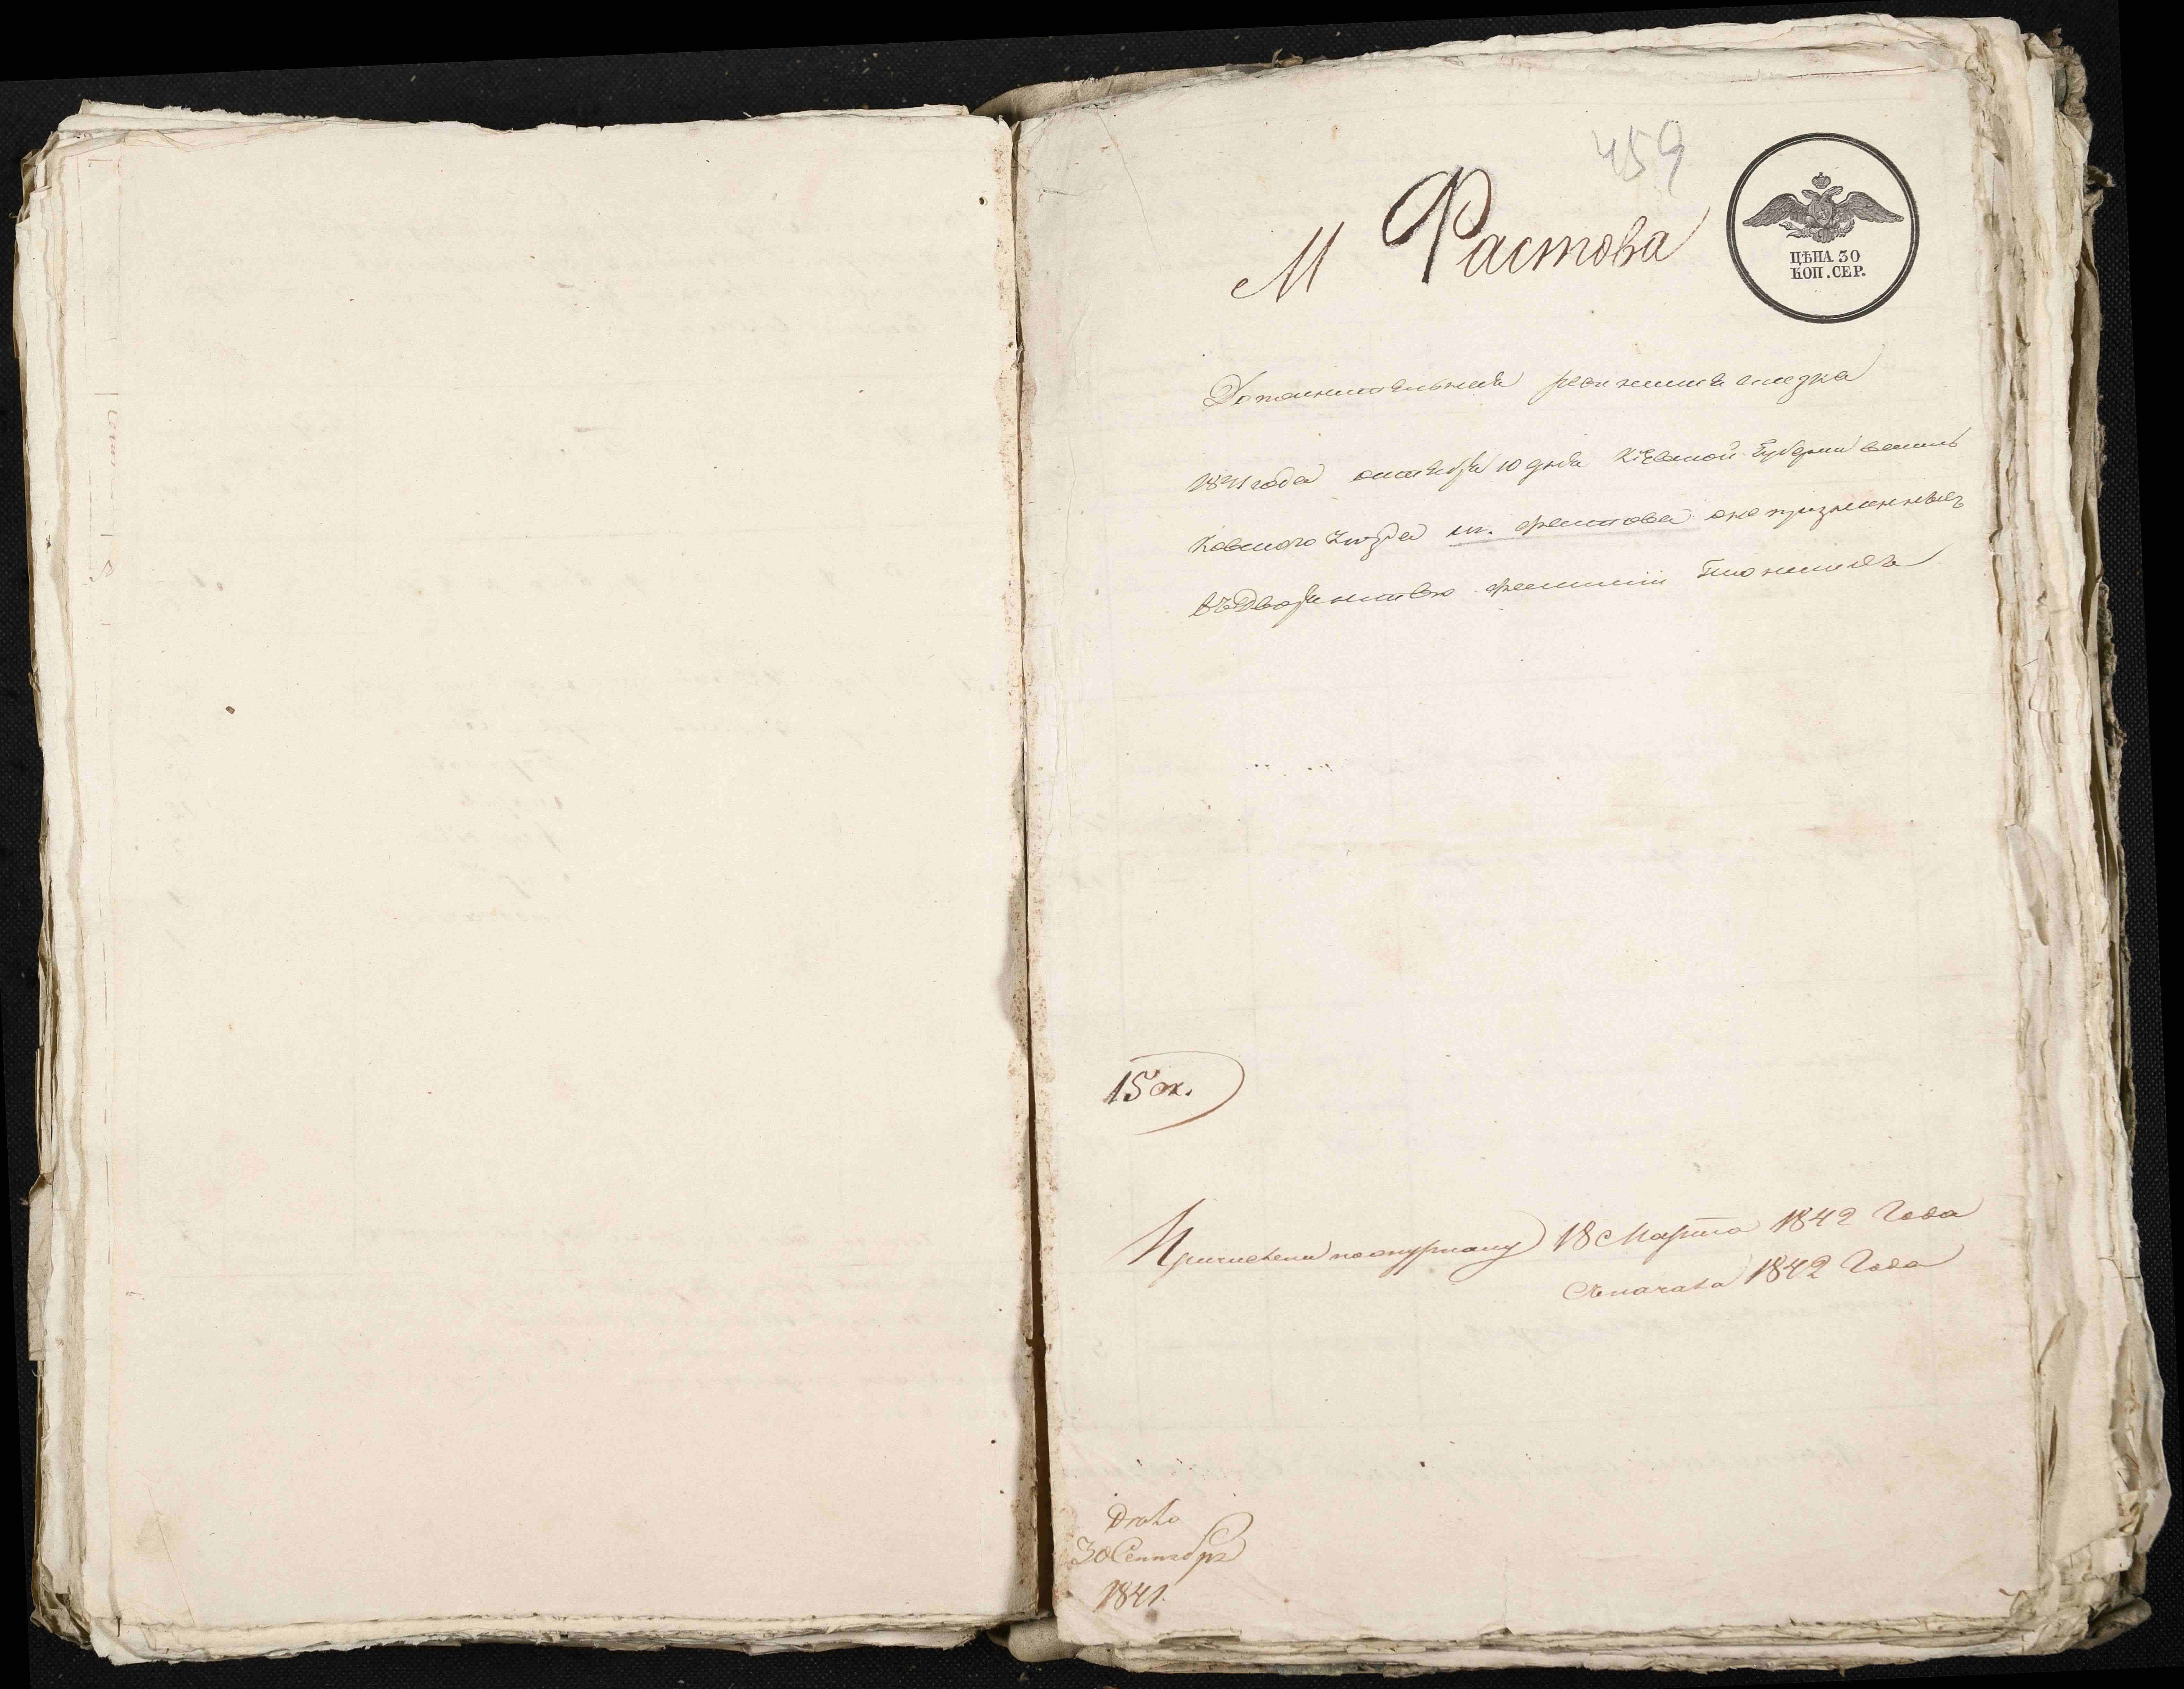 459
М Фастова
ЦѢНА 30
КОП. СЕР.
Дополнительная ревизская сказка
1841 года октября 10 дня Кіевской Губерніи Василь
ковского уезда м. Фастова о не признанныхъ
въ Дворянство фамиліи
15 ок.
Причислены по окуркану 18 Марта 1842 Года
съ начала 1842 Года
30 Сентября
1841.